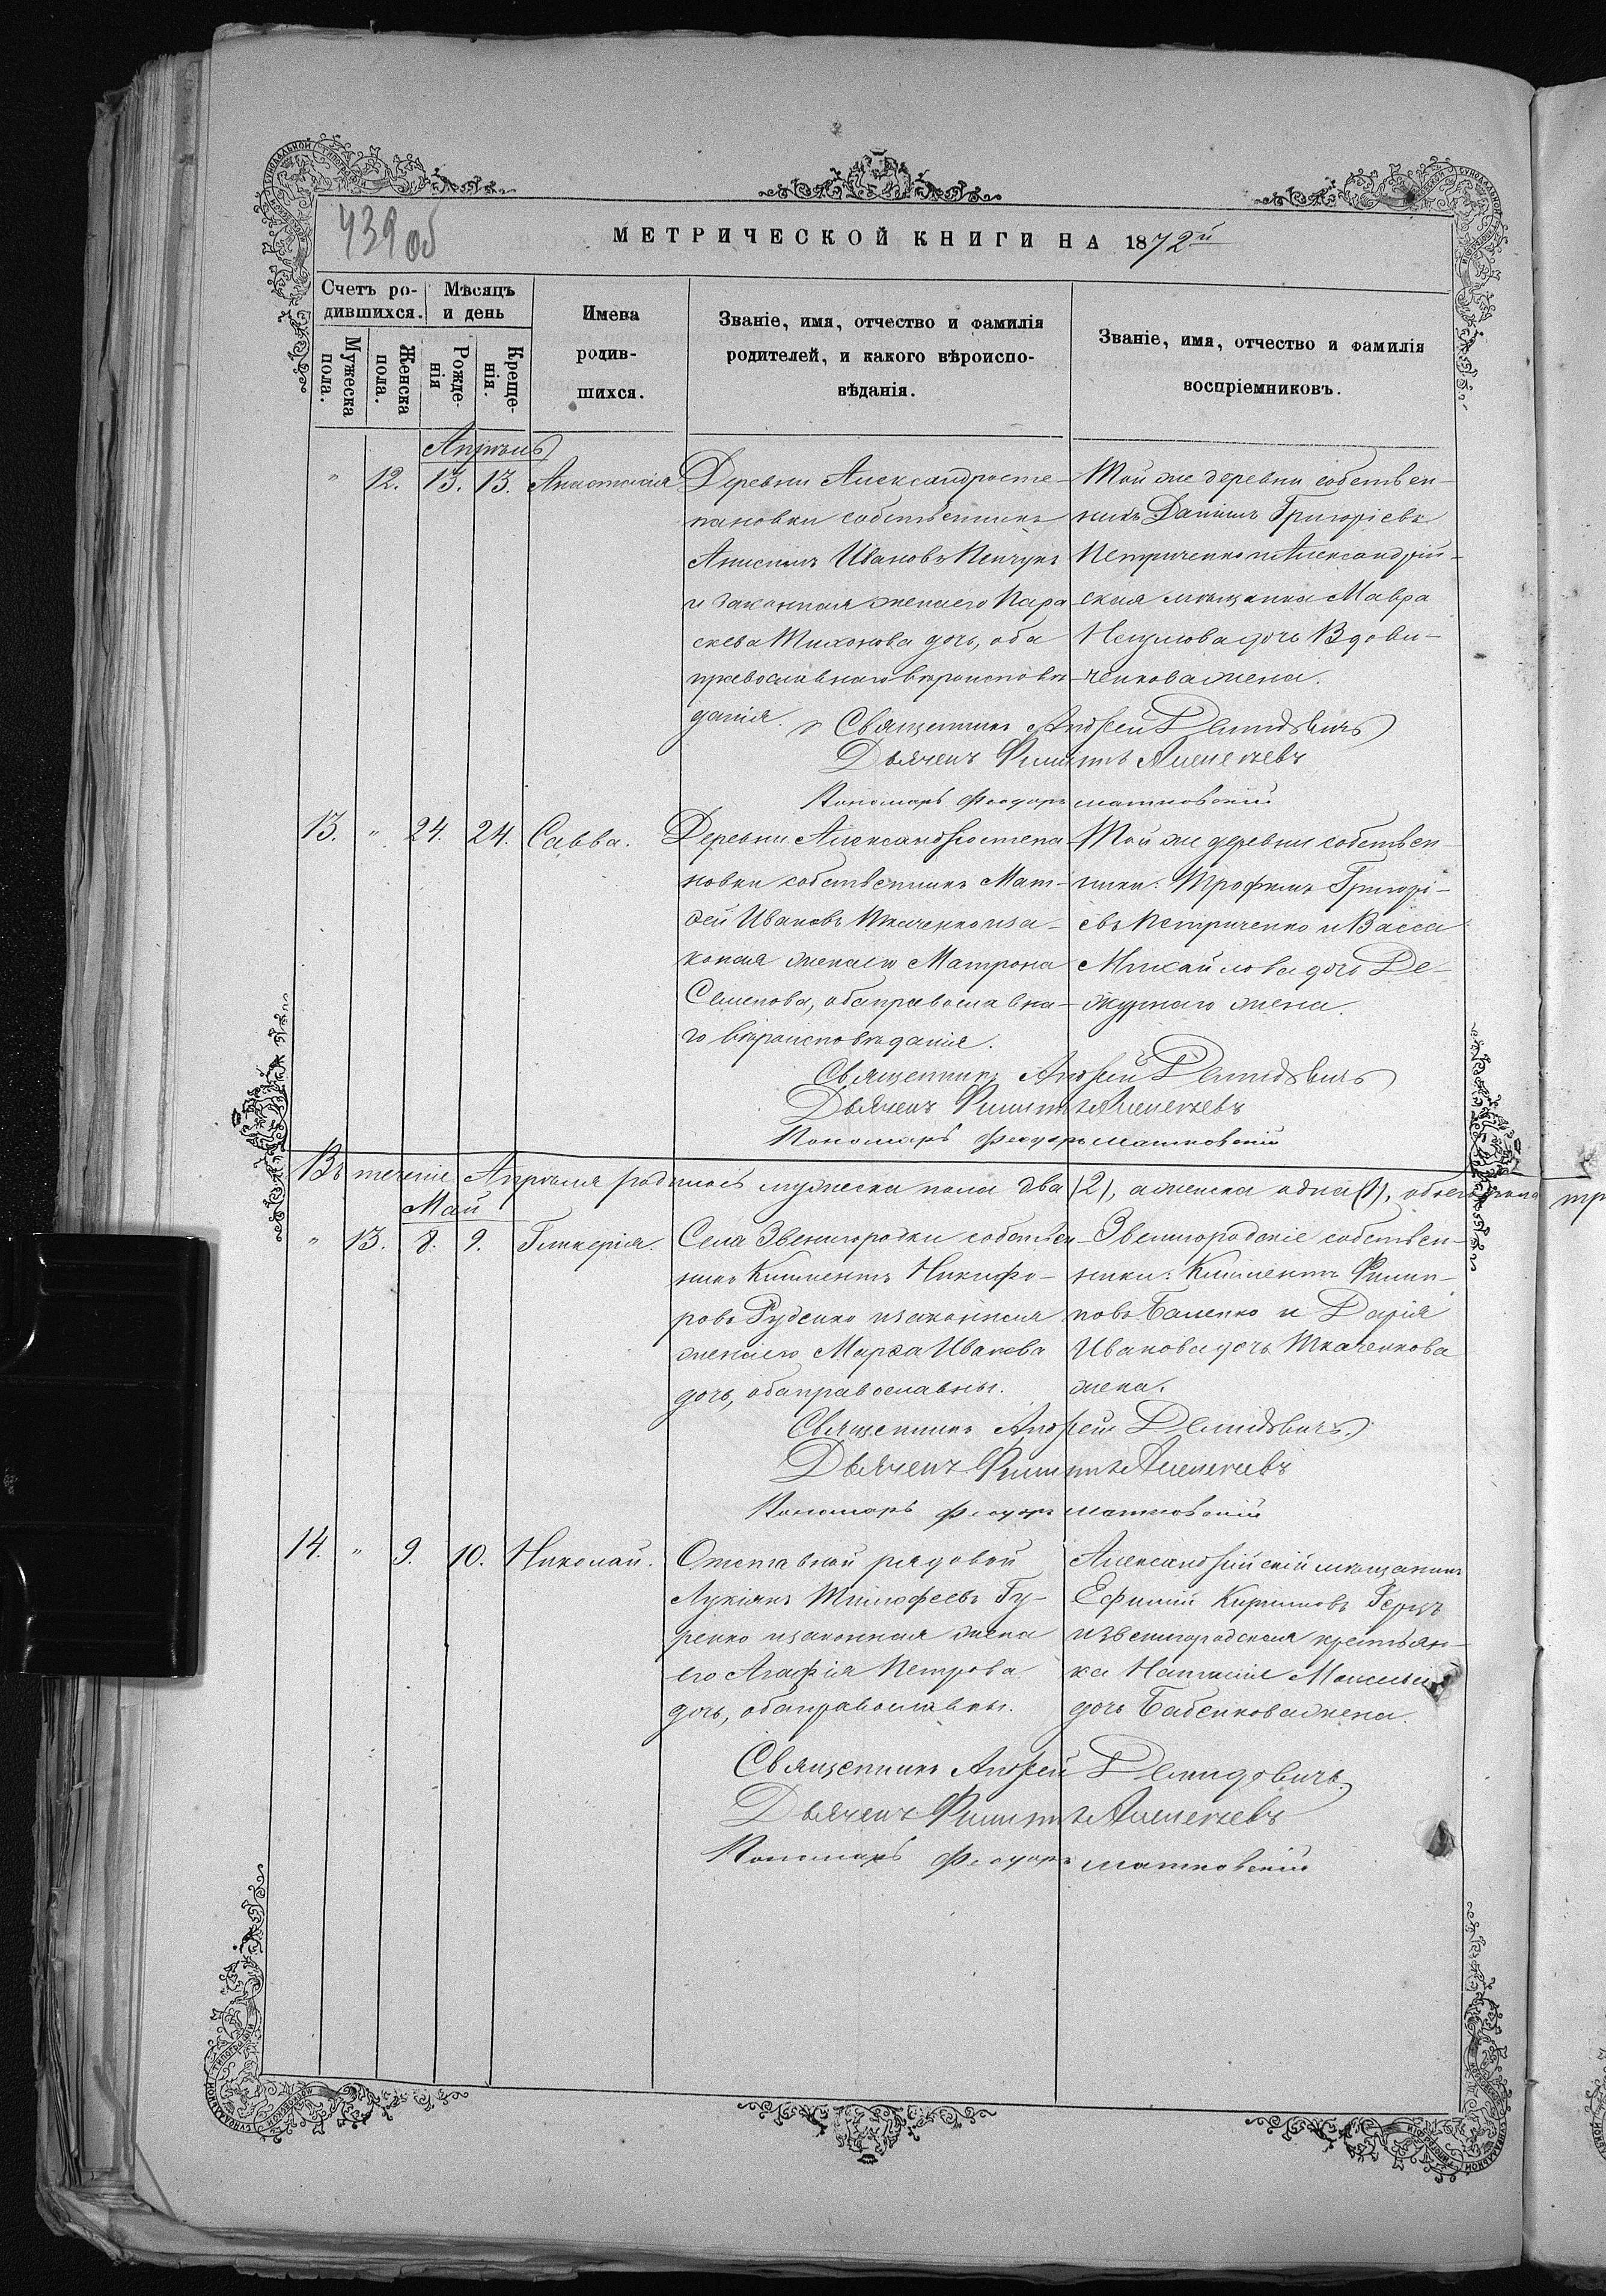 439 об
МЕТРИЧЕСКОЙ КНИГИ НА 1872й
Счетъ ро-
дившихся.
Мужеска
пола.
Женска
пола.
Мѣсяцъ
и день
Рожде-
нія
Креще-
нія.
Имена
родив-
шихся.
Званіе, имя, отчество и фамилія
родителей, и какого вѣроиспо-
вѣданія.
Званіе, имя, отчество и фамилія
воспріемниковъ.
Апрѣль
" 12. 13. 13. Анастасія
Деревни Александросте-
пановки собственникъ
Анисимъ Ивановъ
и законная жена его Пара
скева Тихонова дочь, оба
православнаго вѣроисповѣ
данія.
Той же деревни собствен-
никъ Даніилъ Григорієвъ
Петриченко и Александрій-
ская мѣщанка Мавра
Наумова дочь Вдови-
ченкова жена.
Священникъ Андрей Демидовичъ
Дьячекъ Филиппъ Алексѣевъ
Пономарь Феодоръ
13. " 24. 24. Савва.
Деревни Александростепа
новки собственникъ Мат-
ѳей Ивановъ Ткаченко и за-
конная жена его Матрона
Семенова, оба православна-
го вѣроисповѣданія.
Той же деревни собствен-
ники: Трофимъ Григорі-
евъ Петриченко и Васса
Михайлова дочь Де-
журнаго жена.
Священникъ Андрей Демидовичъ
Дьячекъ Филиппъ Алексѣевъ
Пономарь Феодоръ
Въ теченіе Апрѣля родилось мужеска пола два (2), а женска одна (1), обоего пола тр
Май
" 13. 8. 9. Гликерія.
Села Звенигородки собствен-
никъ Климентъ Никифо-
ровъ Руденко и законная
жена его Марѳа Иванова
дочь, оба православны.
Звенигородскіе собствен-
ники: Климентъ Филип-
повъ Баленко и Дарія
Иванова дочь Ткаченкова
жена.
Священникъ Андрей Демидовичъ.
Дьячекъ Филиппъ Алексѣевъ
Пономарь Феодоръ
14. " 9. 10. Николай.
Отставной рядовой
Лукіянъ Тимофеевъ Гу-
ренко и законная жена
его Агафія Петрова
дочь, оба православны.
Александрійскій мѣщанинъ
Ефимій Кирилловъ
и звенигородская крестьян-
ка Наталія
дочь Бабенкова жена.
Священникъ Андрей Демидовичъ.
Дьячекъ Филиппъ Алексѣевъ
Пономарь Феодоръ